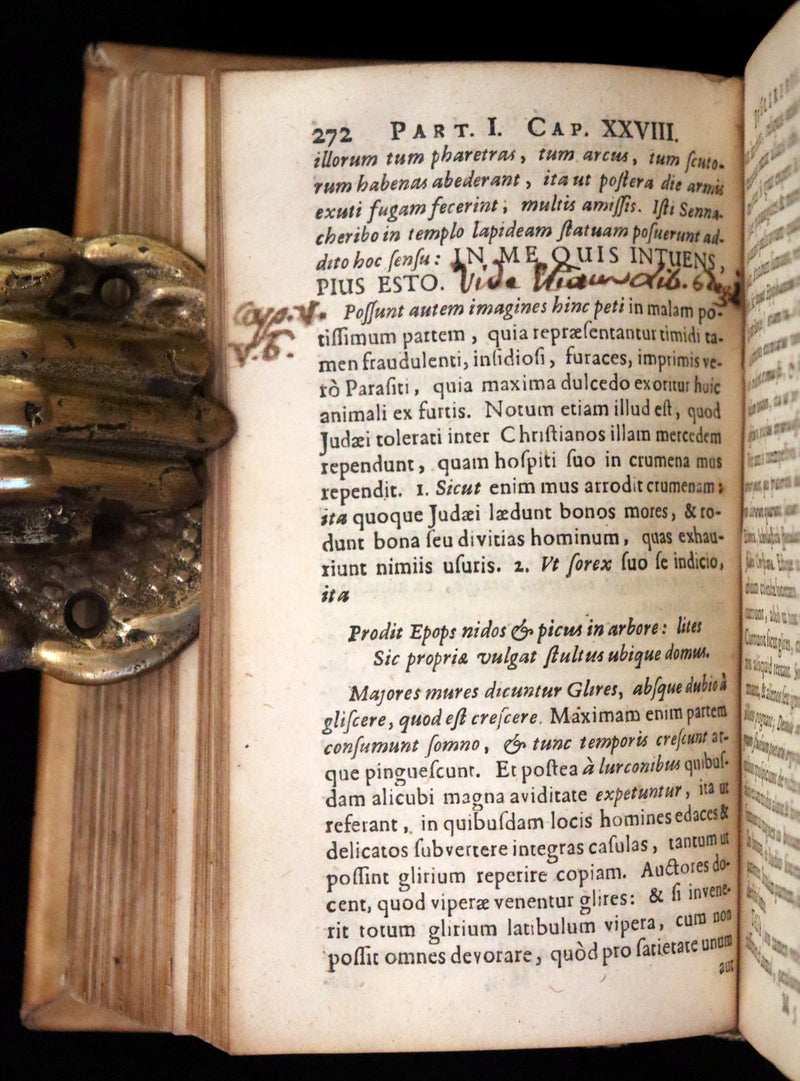 272 PART. I. CAP. XXVIII.
illorum tum pharetras, tum arcus, tum ſcuto-
rum habenas abederant, ita ut poſtera die armis
exuti fugam fecerint; multis amiſſis. Iſti Senna-
cheribo in templo lapideam ſtatuam poſuerunt ad-
dito hoc ſenſu: IN ME QUIS INTUENS,
PIUS ESTO. Vide
Poſſunt autem imagines hinc peti in malam po-
tiſſimum partem, quia repræſentantur timidi ta-
men fraudulenti, inſidioſi, furaces, imprimis ve-
rò Paraſiti, quia maxima dulcedo exoritur huic
animali ex furtis. Notum etiam illud eſt, quod
Judæi tolerati inter Chriſtianos illam mercedem
rependunt, quam hoſpiti ſuo in crumena mus
rependit. 1. Sicut enim mus arrodit crumenam;
ita quoque Judæi lædunt bonos mores, & ro-
dunt bona ſeu divitias hominum, quas exhau-
riunt nimiis uſuris. 2. Vt ſorex ſuo ſe indicio,
ita
Prodit Epops nidos & picus in arbore: lites
Sic propria vulgat ſtultus ubique domus.
Majores mures dicuntur Glires, abſque dubio à
gliſcere, quod eſt creſcere. Maximam enim partem
conſumunt ſomno, & tunc temporis creſcunt at-
que pingueſcunt. Et poſtea à lurconibus quibuſ-
dam alicubi magna aviditate expetuntur, ita ut
referant, in quibuſdam locis homines edaces &
delicatos ſubvertere integras caſulas, tantum ut
poſſint glirium reperire copiam. Auctores do-
cent, quod viperæ venentur glires: & ſi invene-
rit totum glirium latibulum vipera, cum non
poſſit omnes devorare, quòd pro ſatietate unum
aut